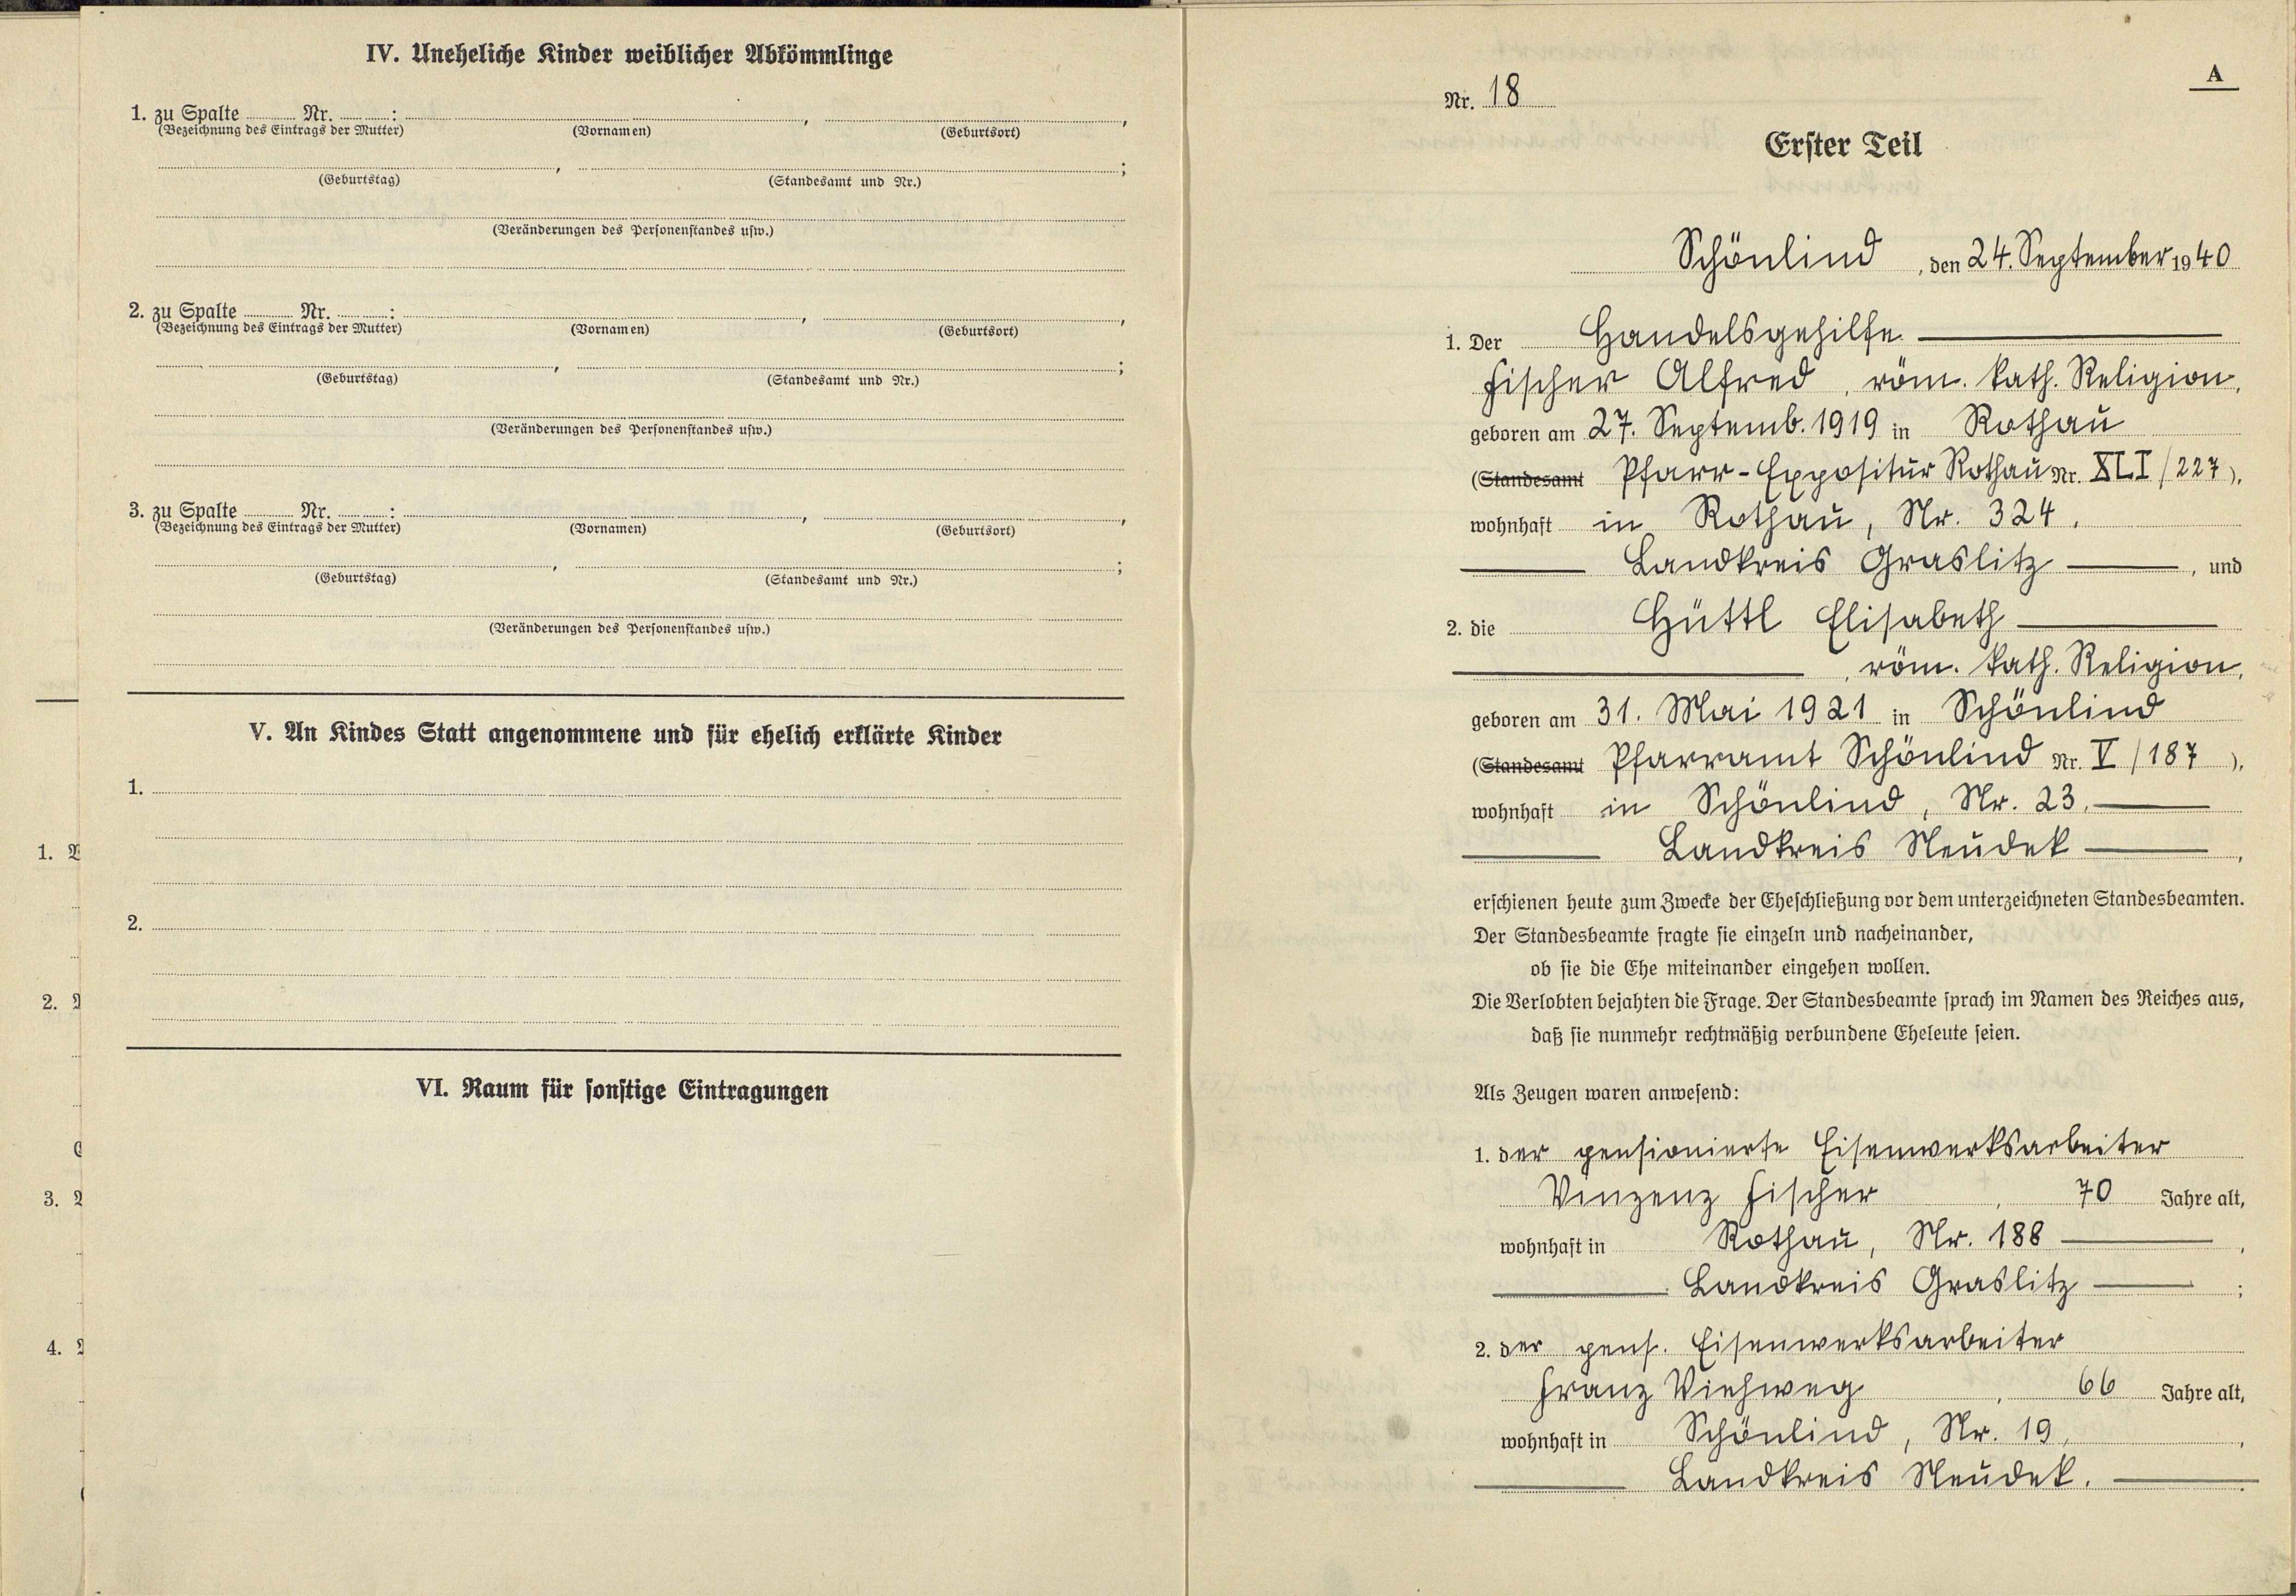 IV. Uneheliche Kinder weiblicher Abkömmlinge
1. zu Spalte ........ Nr. ........ :
(Bezeichnung des Eintrags der Mutter) (Vornamen) (Geburtsort)
(Geburtstag) (Standesamt und Nr.)
(Veränderungen des Personenstandes usw.)
2. zu Spalte ........ Nr. ........ :
(Bezeichnung des Eintrags der Mutter) (Vornamen) (Geburtsort)
(Geburtstag) (Standesamt und Nr.)
(Veränderungen des Personenstandes usw.)
3. zu Spalte ........ Nr. ........ :
(Bezeichnung des Eintrags der Mutter) (Vornamen) (Geburtsort)
(Geburtstag) (Standesamt und Nr.)
(Veränderungen des Personenstandes usw.)
V. An Kindes Statt angenommene und für ehelich erklärte Kinder
1.
2.
VI. Raum für sonstige Eintragungen
1.
2.
3.
4.
A
Nr. 18
Erster Teil
Schönlind, den 24. September 1940
1. Der Handelsgehilfe
Fischer Alfred, röm. kath. Religion,
geboren am 27. Septemb. 1919 in Rothau
(Standesamt Pfarr-Expositur Rothau Nr. XLI/227),
wohnhaft in Rothau, Nr. 324,
Landkreis Graslitz, und
2. die Hüttl Elisabeth
, röm. kath. Religion,
geboren am 31. Mai 1921 in Schönlind
(Standesamt Pfarramt Schönlind Nr. V/187),
wohnhaft in Schönlind, Nr. 23,
Landkreis Neudek,
erschienen heute zum Zwecke der Eheschließung vor dem unterzeichneten Standesbeamten.
Der Standesbeamte fragte sie einzeln und nacheinander,
ob sie die Ehe miteinander eingehen wollen.
Die Verlobten bejahten die Frage. Der Standesbeamte sprach im Namen des Reiches aus,
daß sie nunmehr rechtmäßig verbundene Eheleute seien.
Als Zeugen waren anwesend:
1. der pensionierte Eisenwerksarbeiter
Vinzenz Fischer, 70 Jahre alt,
wohnhaft in Rothau, Nr. 188,
Landkreis Graslitz;
2. der pens. Eisenwerksarbeiter
Franz Viehweg, 66 Jahre alt,
wohnhaft in Schönlind, Nr. 19,
Landkreis Neudek.